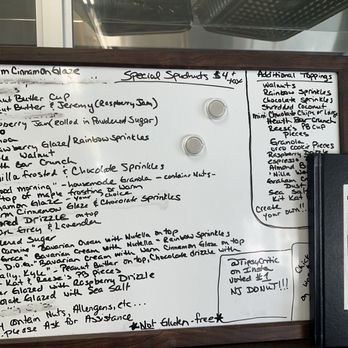 rm Cinnamon Glaze
Special Spudnuts $4 + tax
nut Butter Cup
ut Butter & Jeremy (Raspberry Jam)
pberry Jam (rolled in Powdered Sugar)
wberry Glaze/Rainbow Sprinkles
le Walnut
th Bar Crunch
nilla frosted & Chocolate Sprinkles
ood morning" - housemade Granola - contains Nuts -
top of maple frosting or warm
namon Glaze - your choice
rm Cinnamon Glaze & Chocolate Sprinkles
ored Drizzle on top
l Grey & Lavender
dered Sugar
Carmine" - Bavarian Cream with Nutella on top
"Grace" Bavarian Cream with Nutella - Rainbow Sprinkles
D.O.G." Bavarian Cream with Cinnamon Glaze on top
ally, Kyle" - Peanut Butter on top, Chocolate drizzle with
Kit Kat & Reese's PB pieces
er Glazed with Raspberry Drizzle
colate Glazed with Sea Salt
y contain Nuts, Allergens, etc...
please Ask for Assistance
*Not Gluten-free*
Additional Toppings
Walnuts
Rainbow Sprinkles
Chocolate Sprinkles
Shredded Coconut
Mini Chocolate Chips or Large
Heath Bar Crunch
Reese's PB Cup
Pieces
Granola
Oreo Cookie Pieces
Raspberry Drizzle
Espresso
Almond
'Nilla W
Graham Cr
Dust
Sea
Kit Kat
Create
your own!!
@TipsyCritic
on Insta
voted #1
NJ DONUT!!!